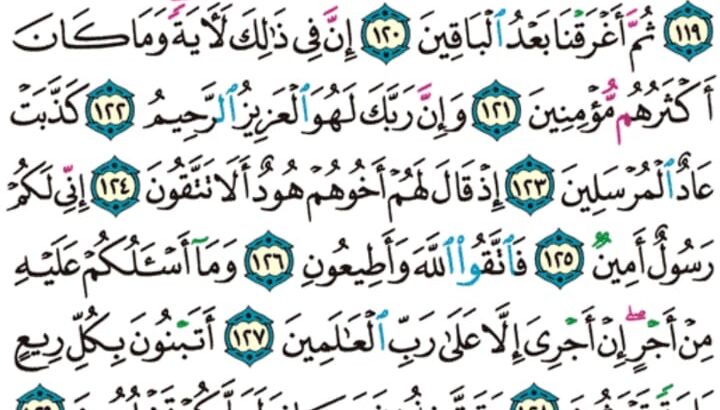 ١١٩ ثُمَّ أَغْرَقْنَا بَعْدُ ٱلْبَاقِينَ ١٢٠ إِنَّ فِى ذَٰلِكَ لَأٓيَةً وَمَا كَانَ
أَكْثَرُهُم مُّؤْمِنِينَ ١٢١ وَإِنَّ رَبَّكَ لَهُوَ ٱلْعَزِيزُ ٱلرَّحِيمُ ١٢٢ كَذَّبَتْ
عَادٌ ٱلْمُرْسَلِينَ ١٢٣ إِذْ قَالَ لَهُمْ أَخُوهُمْ هُودٌ أَلَا تَتَّقُونَ ١٢٤ إِنِّى لَكُمْ
رَسُولٌ أَمِينٌ ١٢٥ فَٱتَّقُوا۟ ٱللَّهَ وَأَطِيعُونِ ١٢٦ وَمَآ أَسْـَٔلُكُمْ عَلَيْهِ
مِنْ أَجْرٍ ۖ إِنْ أَجْرِىَ إِلَّا عَلَىٰ رَبِّ ٱلْعَـٰلَمِينَ ١٢٧ أَتَبْنُونَ بِكُلِّ رِيعٍ